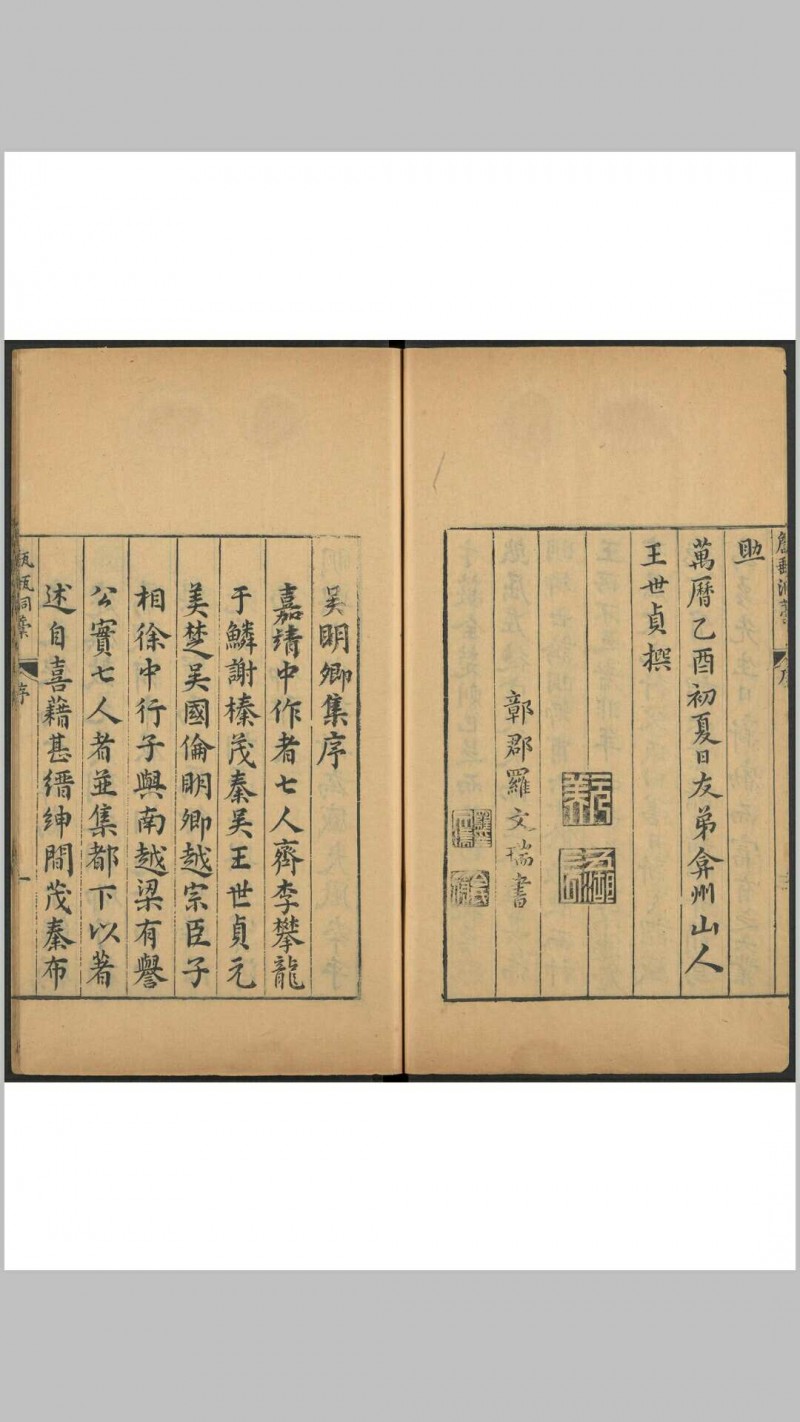 萬曆乙酉初夏日友弟弇州山人
王世貞撰
元美
鄣郡羅文瑞書
吳明卿集序
嘉靖中作者七人齊李攀龍
于鱗謝榛茂秦吳王世貞元
美楚吳國倫明卿越宗臣子
相徐中行子與南越梁有譽
公實七人者並集都下以著
述自喜藉甚縉紳間茂秦布
甔甀洞藁 序 一